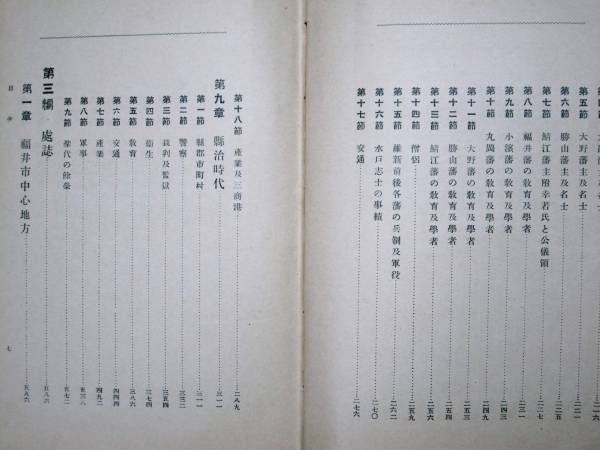 第五節 大野藩主及名士 二二一
第六節 勝山藩主及名士 二二二
第七節 鯖江藩主附幸若氏と公儀領 二二七
第八節 福井藩の敎育及學者 二三一
第九節 小濱藩の敎育及學者 二四三
第十節 丸岡藩の敎育及學者 二四九
第十一節 大野藩の敎育及學者 二五三
第十二節 勝山藩の敎育及學者 二五四
第十三節 鯖江藩の敎育及學者 二五六
第十四節 僧侶 二五九
第十五節 維新前後各藩の兵制及軍役 二六二
第十六節 水戶志士の事蹟 二七〇
第十七節 交通 二七六
第十八節 產業及三商港 二八九
第九章 縣治時代 三一一
第一節 縣郡市町村 三一一
第二節 警察 三三二
第三節 裁判及監獄 三五四
第四節 衞生 三七四
第五節 敎育 三八六
第六節 交通 四四四
第七節 產業 四九二
第八節 軍事 五三八
第九節 聖代の餘榮 五七二
第三編 處誌 五八六
第一章 福井市中心地方 五八六
目次 七